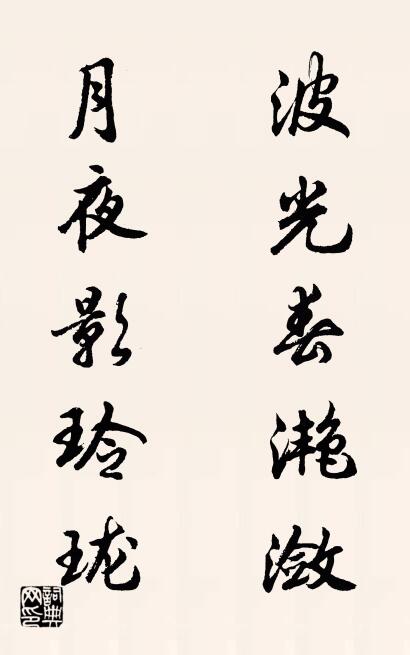 波光春滟潋
月夜影玲珑
詞典
网印